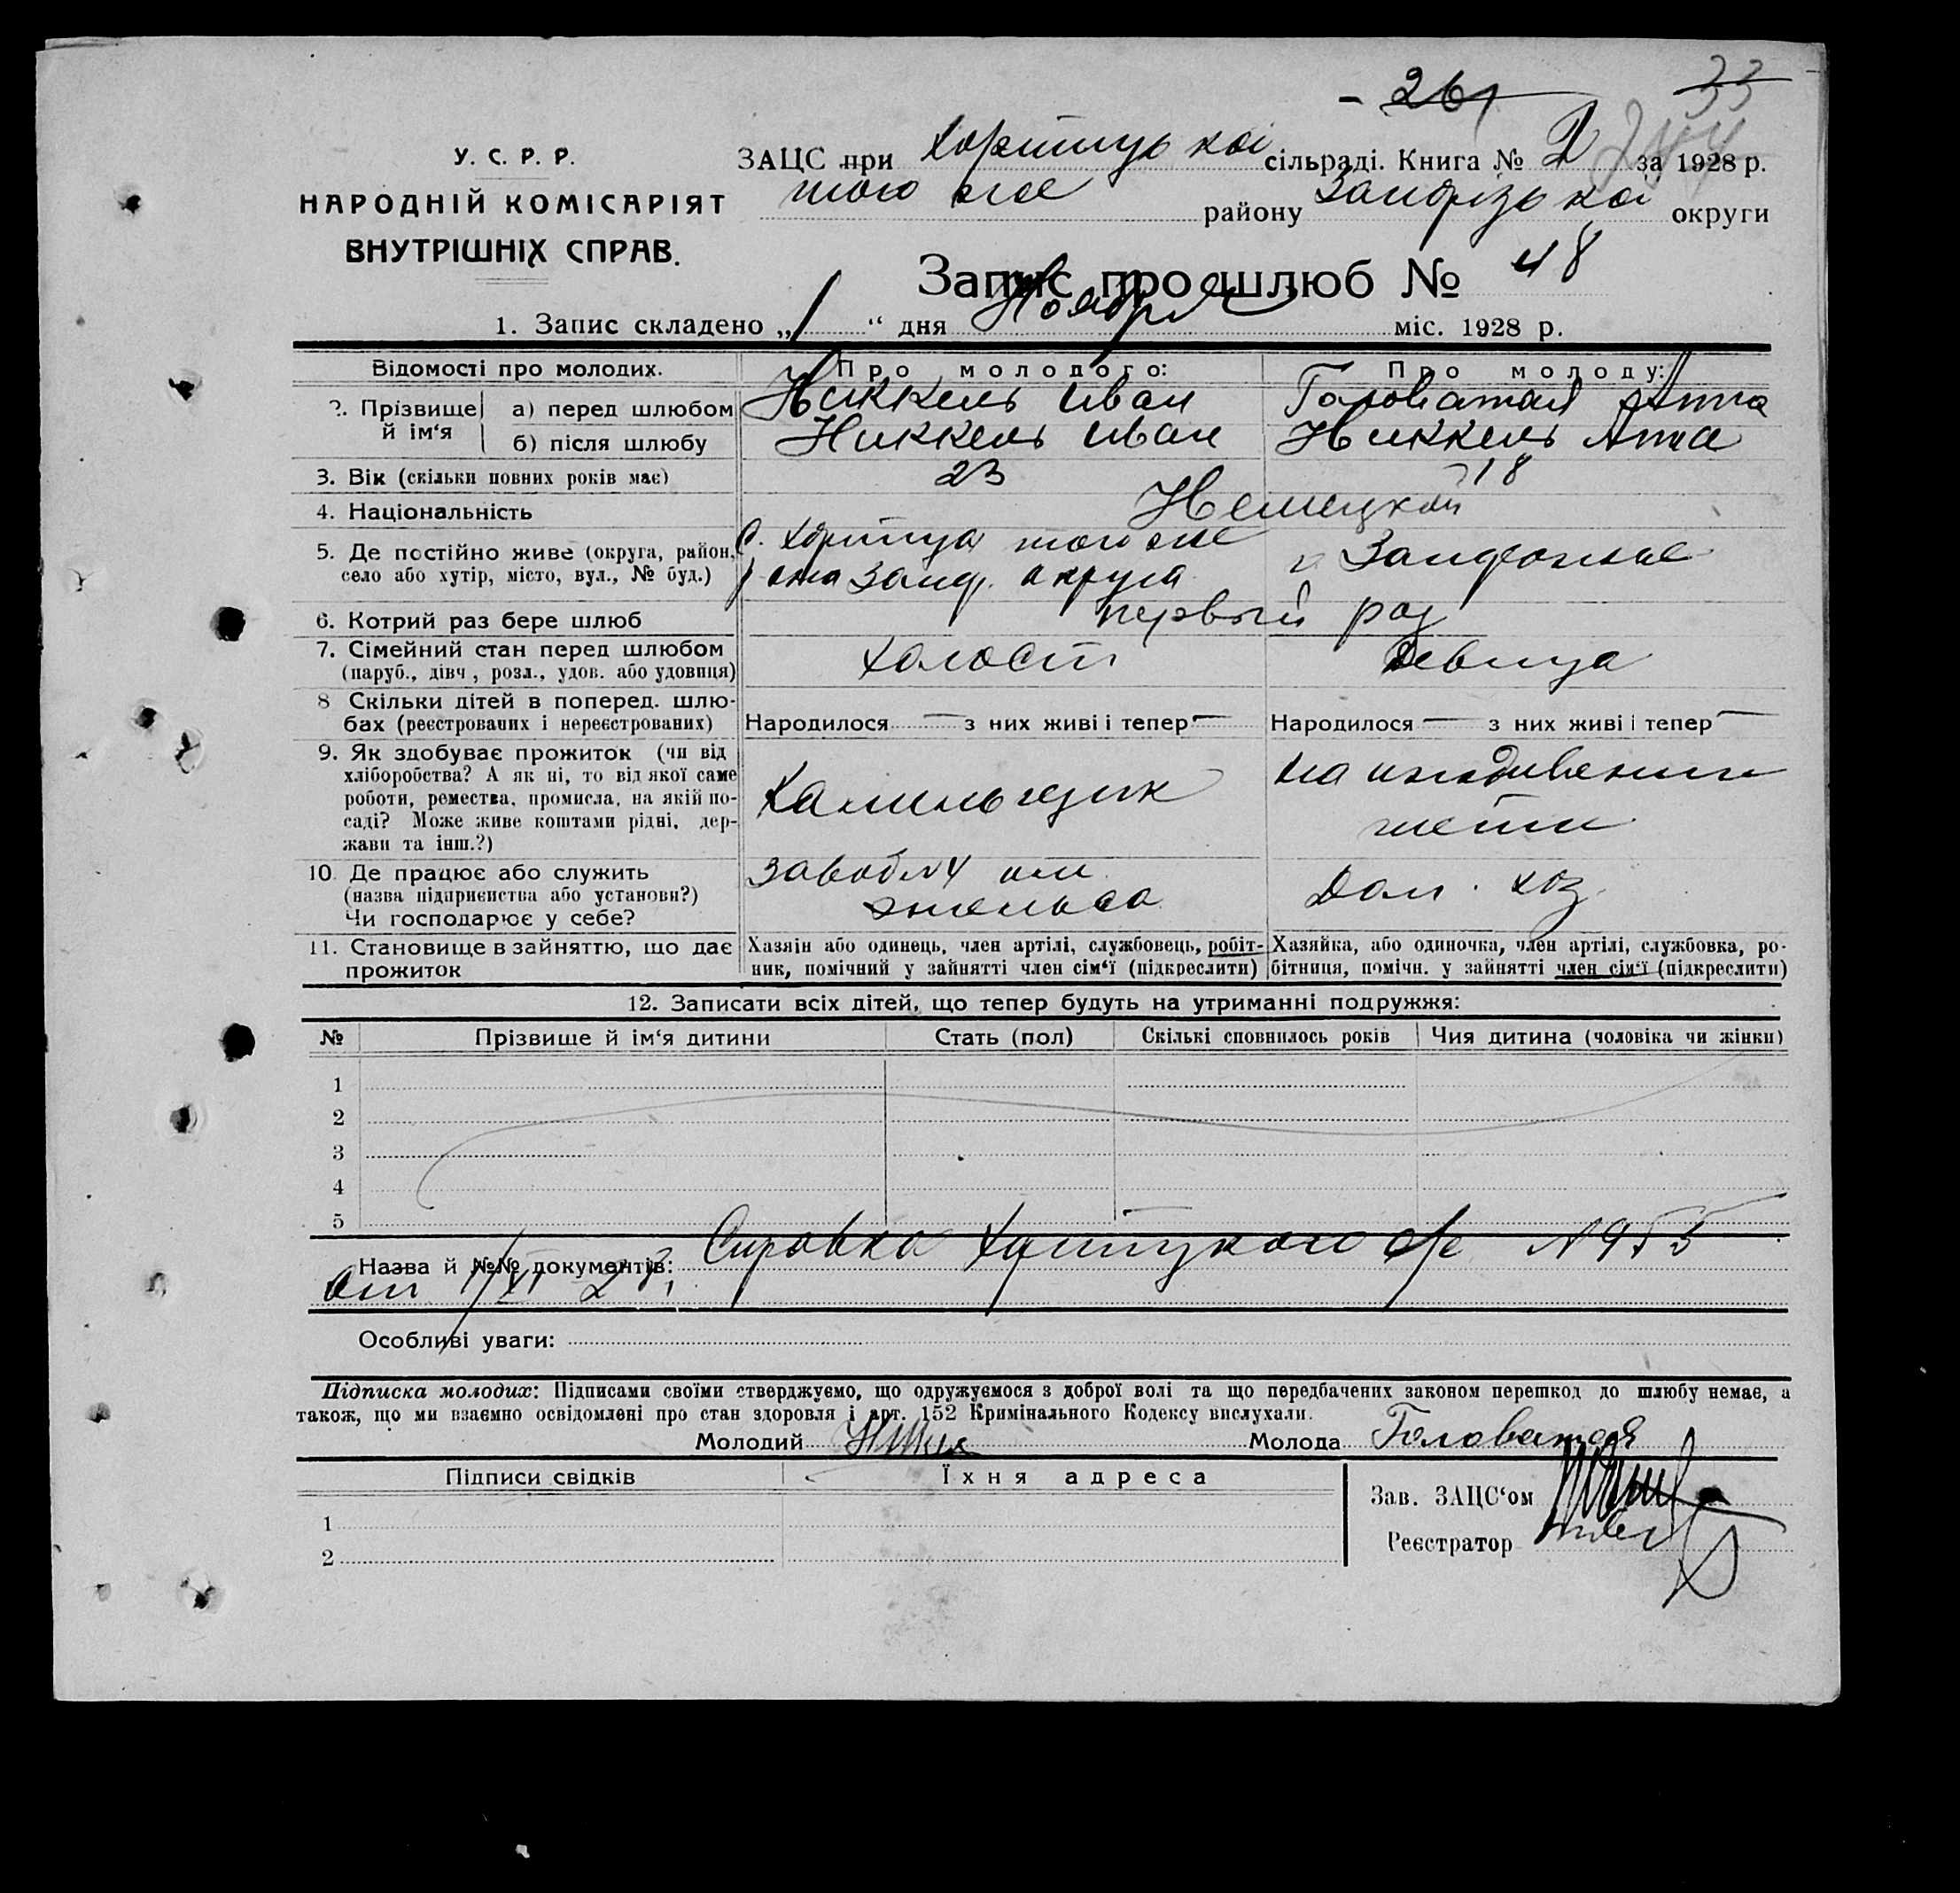 - 261 33
244
У. С. Р. Р.
НАРОДНІЙ КОМІСАРІЯТ
ВНУТРІШНІХ СПРАВ.
ЗАЦС при Хортицькоі сільраді. Книга № 2 за 1928 р.
того же району Запорізькоі округи
Запис про шлюб № 48
1. Запис складено „1“ дня Ноября міс. 1928 р.
Відомості про молодих. Про молодого: Про молоду:
2. Прізвище й ім‘я а) перед шлюбом Никкель Иван Головатая Анна
б) після шлюбу Никкель Иван Никкель Анна
3. Вік (скільки повних років має) 23 18
4. Національність Немецкой
5. Де постійно живе (округа, район, с. Хортица того же г. Запорожье
село або хутір, місто, вул., № буд.) р-на Запор. округа
6. Котрий раз бере шлюб первый раз
7. Сімейний стан перед шлюбом Холост Девица
(паруб., дівч., розл., удов. або удовиця)
8 Скільки дітей в поперед. шлю-
бах (реєстрованих і нереєстрованих) Народилося — з них живі і тепер — Народилося — з них живі і тепер —
9. Як здобуває прожиток (чи від на иждивении
хліборобства? А як ні, то від якої саме
роботи, ремества, промисла, на якій по-
саді? Може живе коштами рідні, дер-
жави та інш.?)
10. Де працює або служить завод №4 им.
(назва підприємства або установи?) Энгельса Дом. хоз.
Чи господарює у себе?
11. Становище в зайняттю, що дає Хазяін або одинець, член артілі, службовець, робіт- Хазяйка, або одиночка, член артілі, службовка, ро-
прожиток ник, помічний у зайнятті член сім‘ї (підкреслити) бітниця, помічн. у зайнятті член сім‘ї (підкреслити)
12. Записати всіх дітей, що тепер будуть на утриманні подружжя:
№ Прізвище й ім‘я дитини Стать (пол) Скількі сповнилось років Чия дитина (чоловіка чи жінки)
1
2
3
4
5
Назва й №№ документів: Справка Хортицкого с/с №955
От 1/XI 28.
Особливі уваги:
Підписка молодих: Підписами своїми стверджуємо, що одружуємося з доброї волі та що передбачених законом перешкод до шлюбу немає, а
також, що ми взаємно освідомлені про стан здоровля і арт. 152 Кримінального Кодексу вислухали.
Молодий Молода Головатая
Підписи свідків Їхня адреса
Зав. ЗАЦС‘ом
1
Реєстратор
2